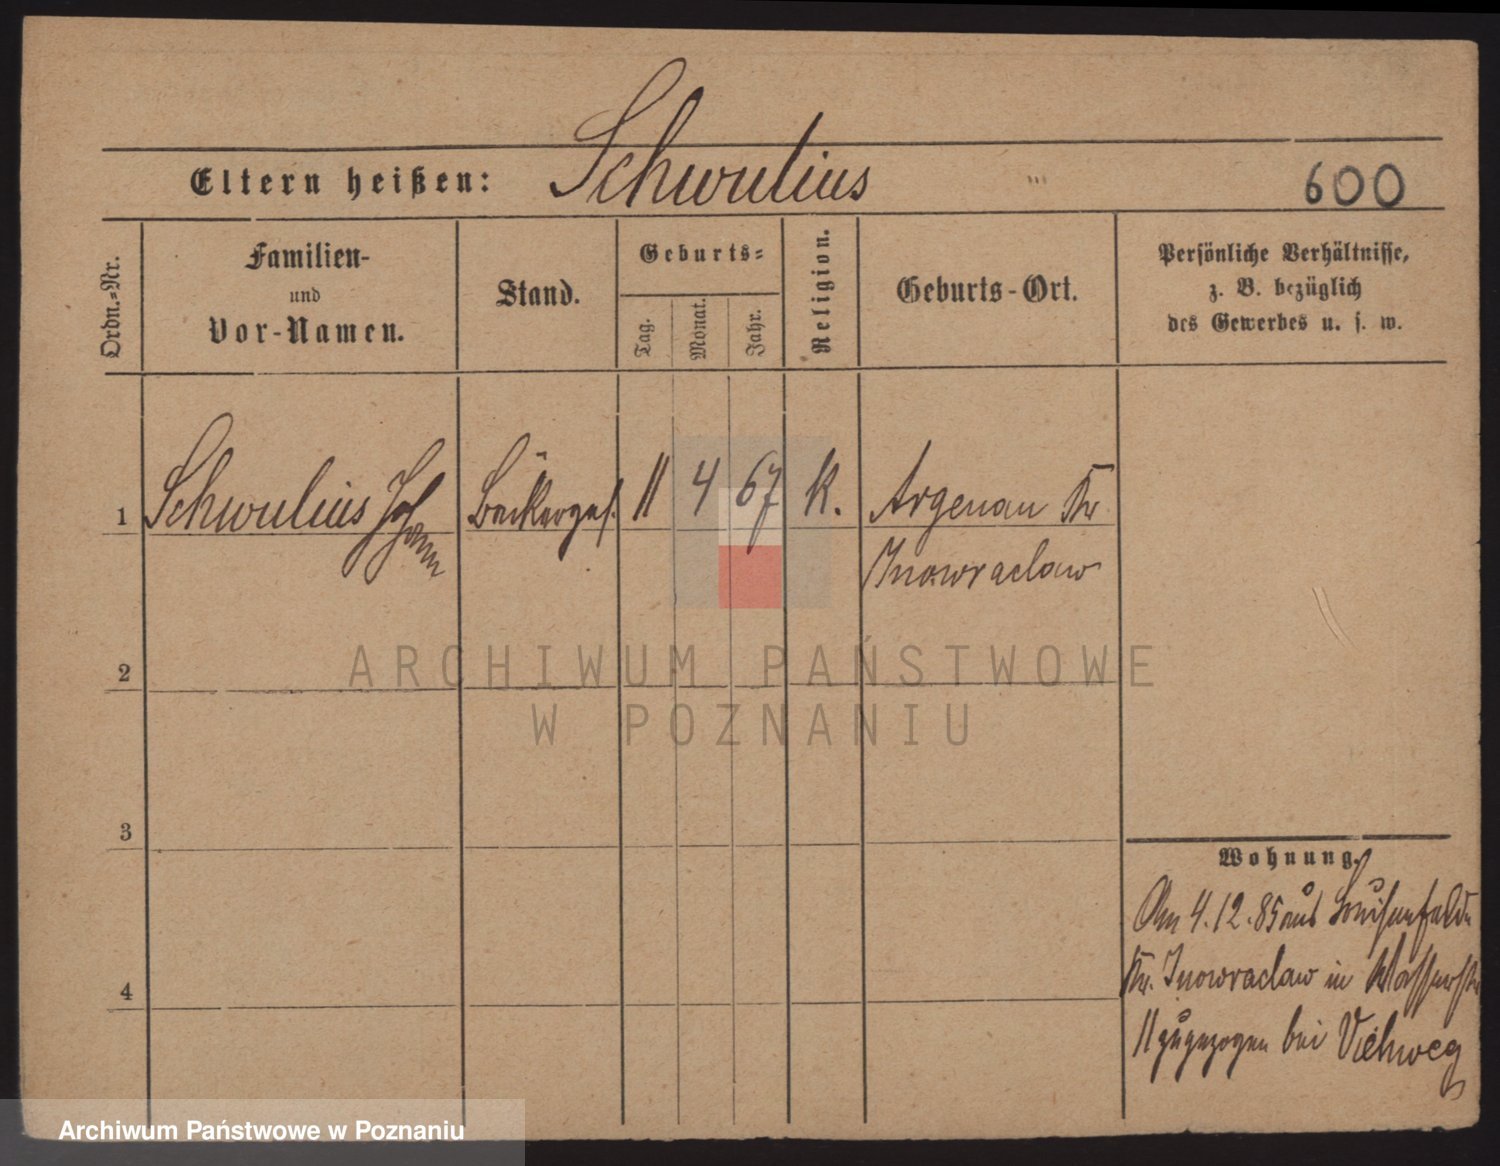 Eltern heißen: Schwulius 600
Ordn.=Nr.
Familien-
und
Vor-Namen.
Stand.
Geburts=
Tag.
Monat.
Jahr.
Religion.
Geburts-Ort.
Persönliche Verhältnisse,
z. B. bezüglich
des Gewerbes u. s. w.
1 Schwulius Johann Bäckerges. 11 4 67 k. Argenau Kr
Inowraclaw
2
ARCHIWUM PAŃSTWOWE
W POZNANIU
3
Wohnung.
Am 4.12.85 aus Louisenfelde
Kr. Inowraclaw in Wasserstr
11 zugezogen bei Viehweg
4
Archiwum Państwowe w Poznaniu